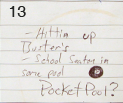 13
- Hittin up
Buster's
- School Santa in
some pool
Pocket Pool?